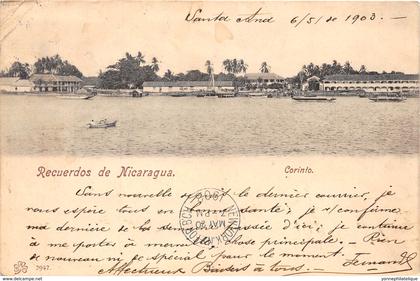 Santa Ana 6/5/ de 1903.
Recuerdos de Nicaragua.
Corinto.
Sans nouvelle depuis le dernier courrier, je
vous espère tous en bonne santé; je confirme
ma dernière de la semaine passée d'ici; je continue
à me porter à merveille, chose principale. - Rien
de nouveau ni de spécial pour le moment.
Affectueux Baisers à tous. Fernand
NEW YORK
MAY 20
7-PM
1903
7947.